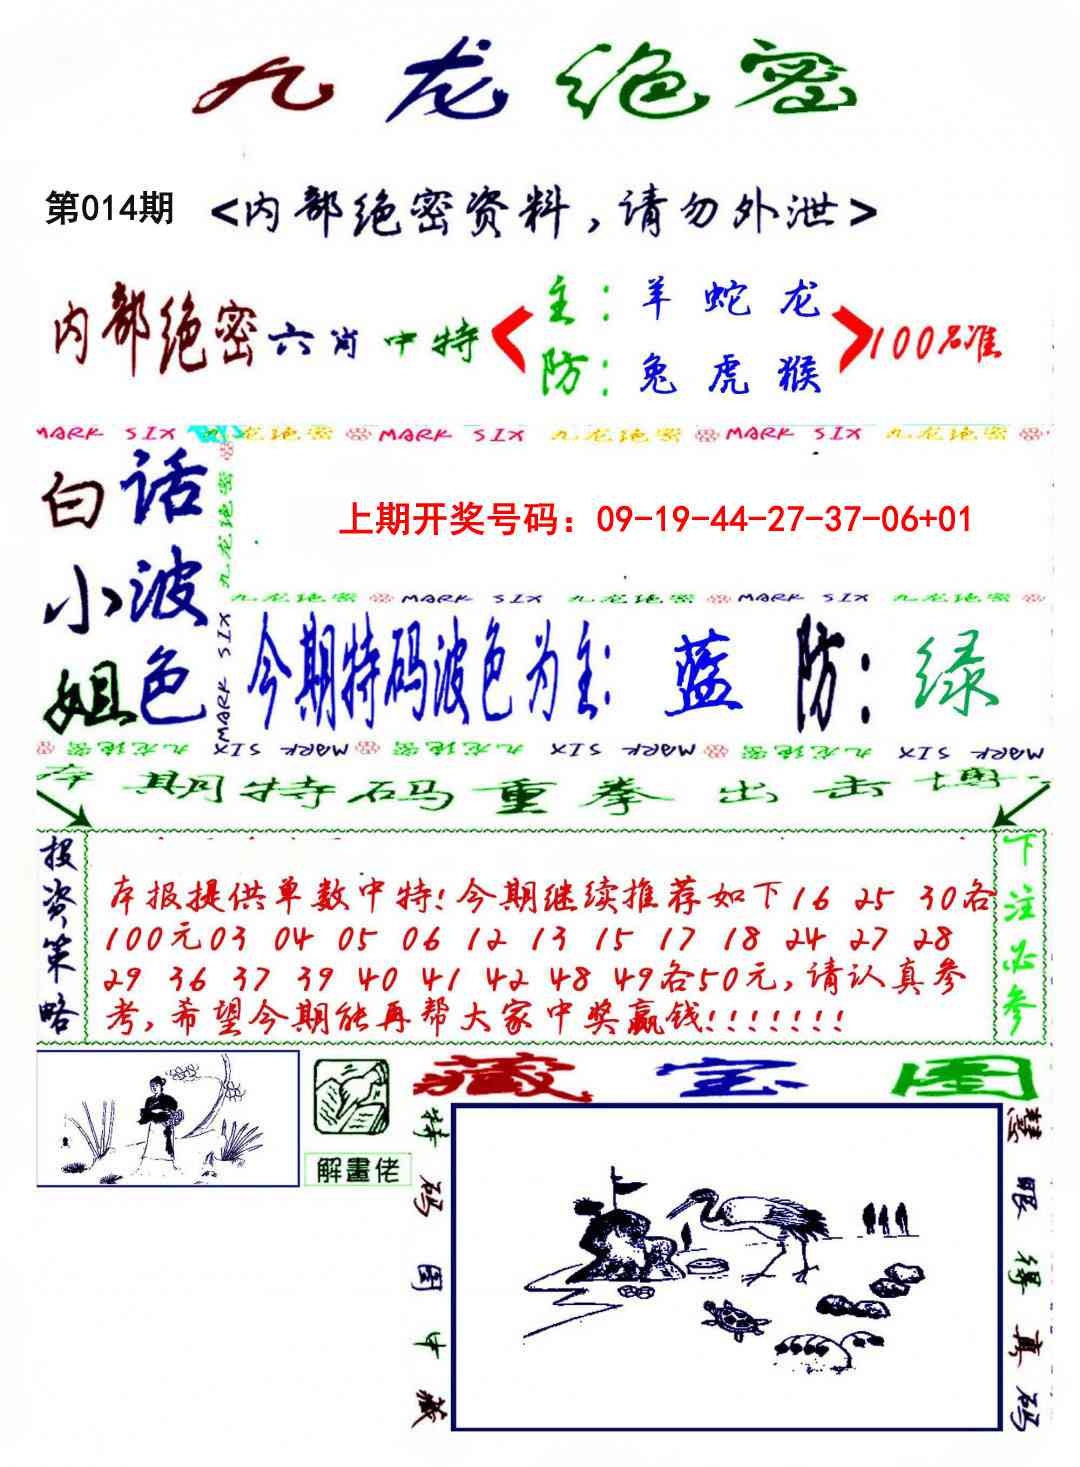 九龙绝密
第014期 <内部绝密资料，请勿外泄>
内部绝密六肖中特
主：羊 蛇 龙
防：兔 虎 猴
100%准
MARK SIX 九龙绝密 MARK SIX 九龙绝密 MARK SIX 九龙绝密
白话
小波
姐色
九龙绝密
MARK SIX
上期开奖号码：09-19-44-27-37-06+01
九龙绝密 MARK SIX 九龙绝密 MARK SIX 九龙绝密
今期特码波色为主：蓝 防：绿
九龙绝密 MARK SIX 九龙绝密 MARK SIX 九龙绝密 MARK SIX
本期特码重拳出击博
投资策略
本报提供单数中特!今期继续推荐如下16 25 30各
100元03 04 05 06 12 13 15 17 18 24 27 28
29 36 37 39 40 41 42 48 49各50元,请认真参
考,希望今期能再帮大家中奖赢钱!!!!!!!
下注必参
解畫佬
藏宝图
特码图中藏
慧眼得真码